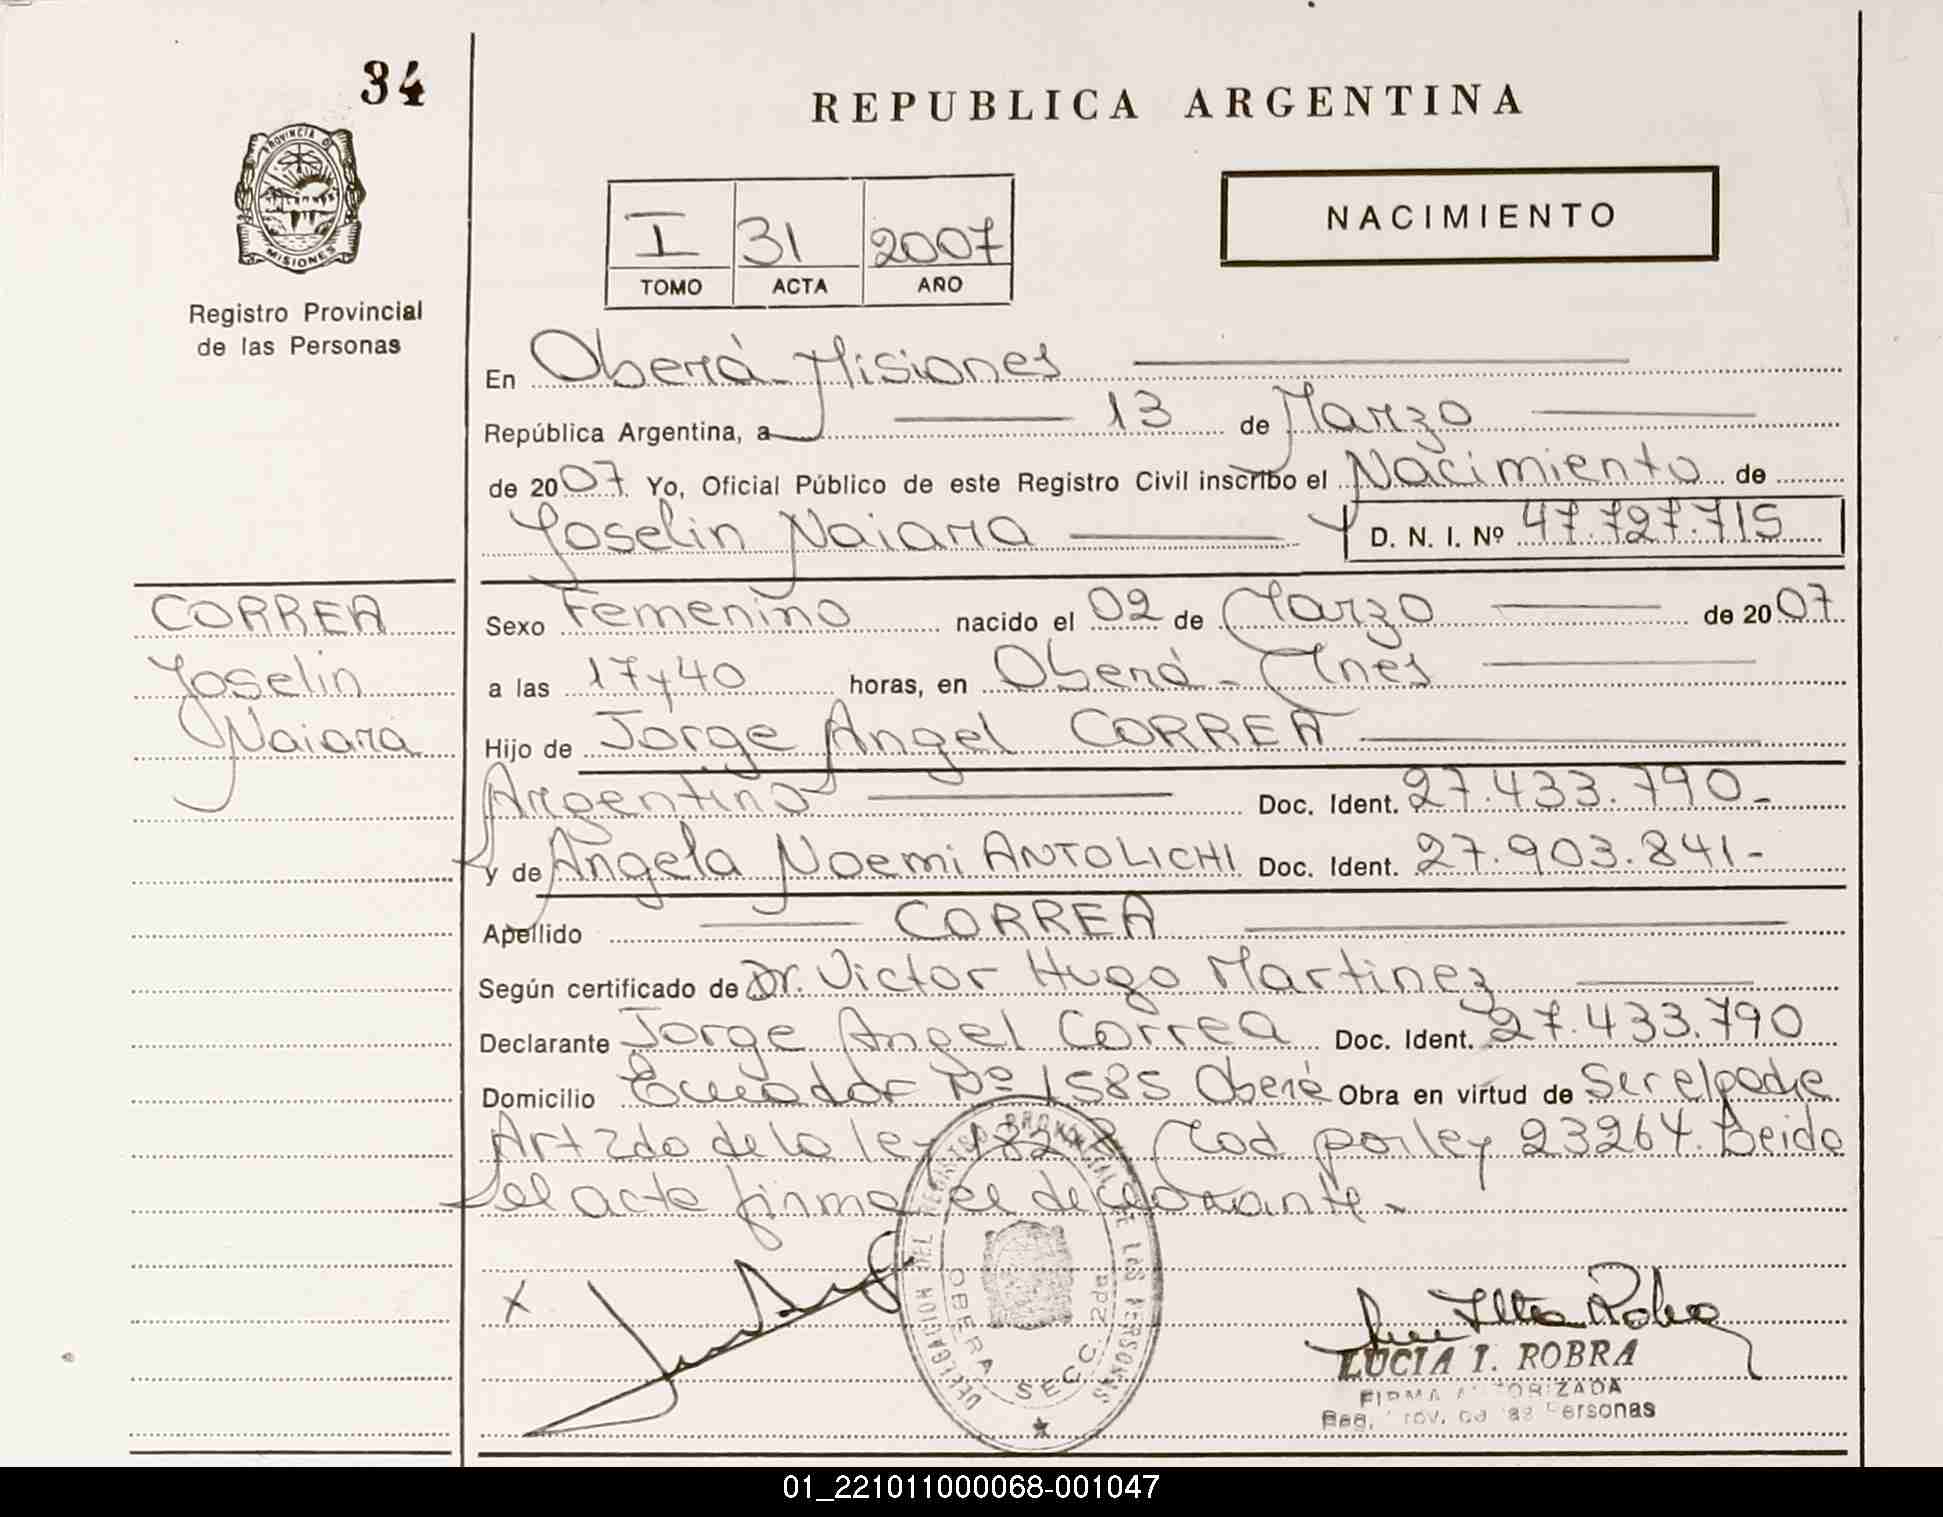 34
REPUBLICA ARGENTINA
PROVINCIA D
MISIONES
Registro Provincial
de las Personas
I 31 2007
TOMO ACTA AÑO
NACIMIENTO
En Oberá - Misiones
República Argentina, a 13 de Marzo
de 2007 Yo, Oficial Público de este Registro Civil inscribo el Nacimiento de
Joselin Naiara D. N. I. Nº 47.727.715
CORREA
Joselin
Naiara
Sexo Femenino nacido el 02 de Marzo de 2007
a las 17y40 horas, en Oberá - Mnes
Hijo de Jorge Angel CORREA
Argentino Doc. Ident. 27.433.790-
y de Angela Noemi ANTOLICHI Doc. Ident. 27.903.841-
Apellido CORREA
Según certificado de Dr. Victor Hugo Martinez
Declarante Jorge Angel Correa Doc. Ident. 27.433.790
Domicilio Ecuador Nº 1585 Oberá Obra en virtud de Ser el padre
Art 2do de la ley Mod por ley 23264. Leido
el acta firma el declarante.-
X
DELEGACION DEL REGISTRO PROVINCIAL DE LAS PERSONAS
OBERA SECC. 2da
LUCIA I. ROBRA
FIRMA AUTORIZADA
Reg. Prov. de las Personas
01_221011000068-001047